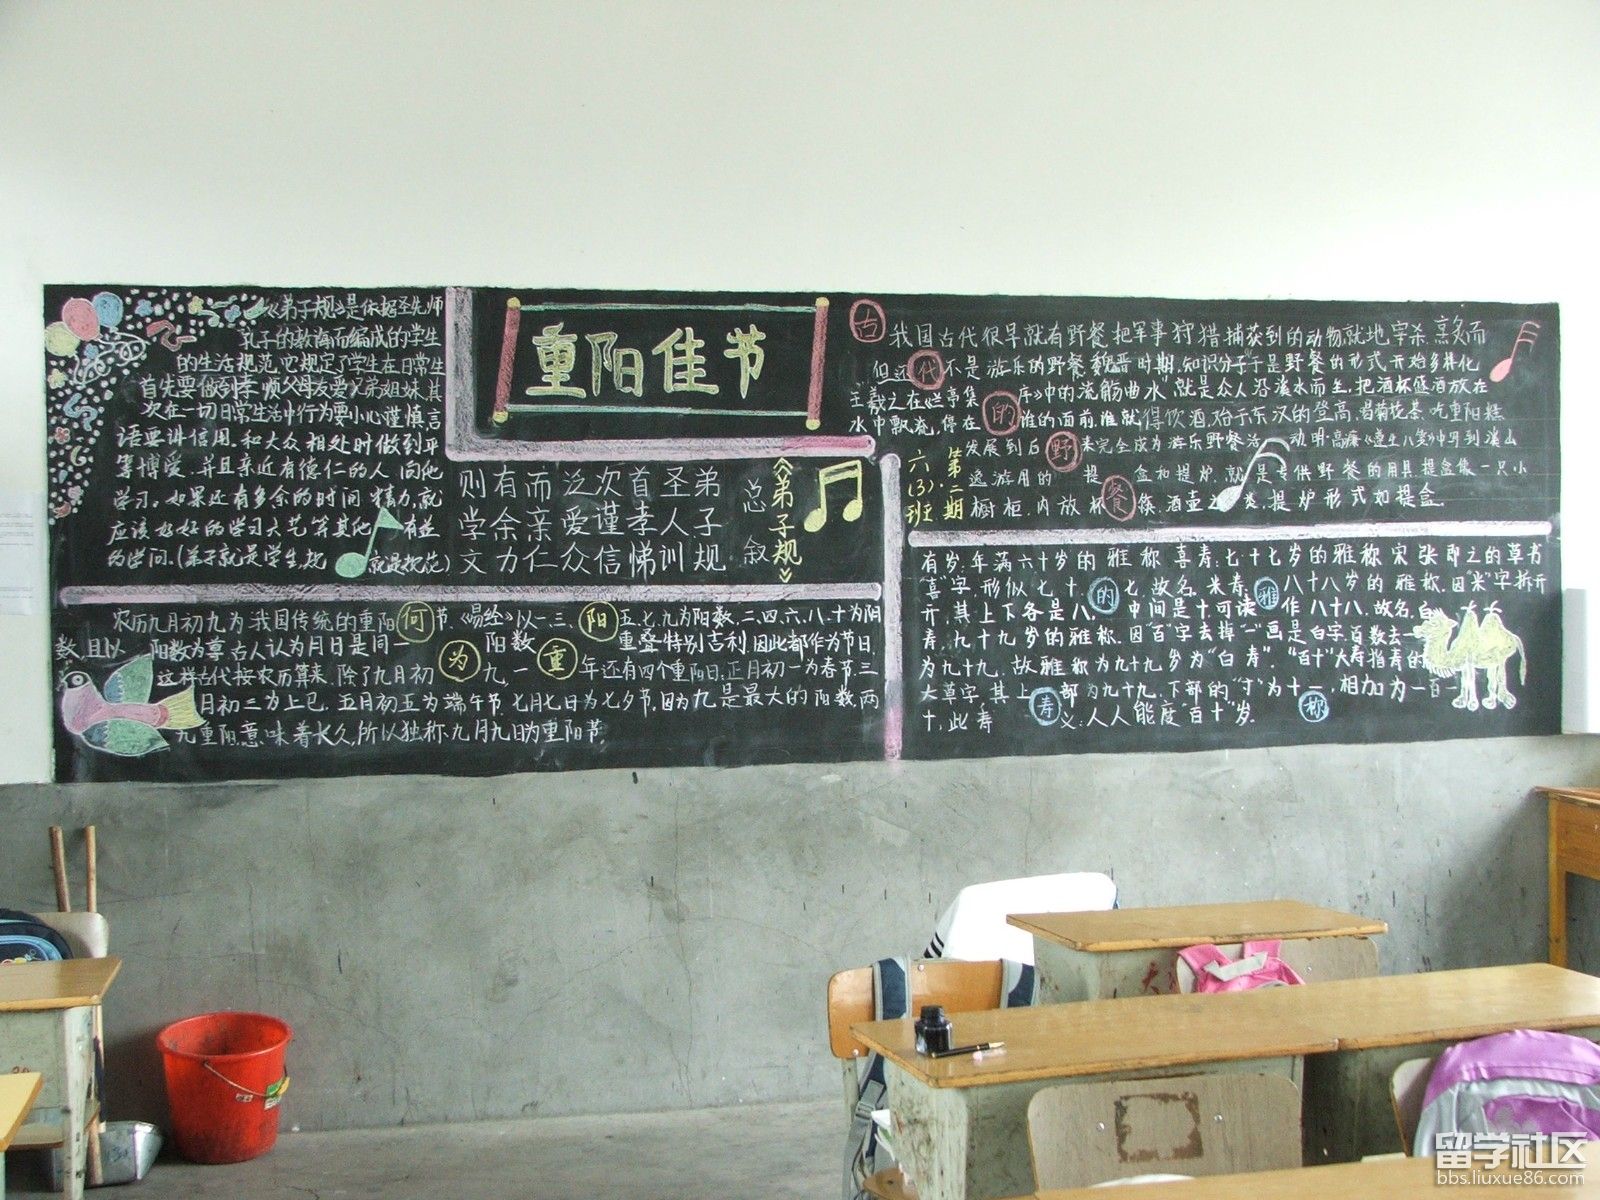 重阳佳节
《弟子规》是依据圣先师
孔子的教诲而编成的学生
的生活规范.它规定了学生在日常生
首先要做到孝顺父母友爱兄弟姐妹.其
次在一切日常生活中行为要小心谨慎言
语要讲信用.和大众相处时做到平
等博爱.并且亲近有德仁的人向他
学习.如果还有多余的时间精力,就
应该好好的学习六艺等其他有益
的学问.(弟子就是学生,规就是规范)
《弟子规》
总叙
则有而泛次首圣弟
学余亲爱谨孝人子
文力仁众信悌训规
农历九月初九为我国传统的重阳节.《易经》以一.三.五.七.九为阳数,二.四.六.八.十为阴
数,且以阳数为尊古人认为月日是同一阳数重叠特别吉利,因此都作为节日.
这样古代按农历算来,除了九月初九,一年还有四个重阳日,正月初一为春节.三
月初三为上巳,五月初五为端午节,七月七日为七夕节.因为九是最大的阳数,两
九重阳,意味着长久,所以独称九月九日为重阳节.
何
为
重
阳
古
代
的
野
餐
我国古代很早就有野餐,把军事狩猎捕获到的动物就地宰杀.烹炙而
但还不是游乐的野餐.魏晋时期,知识分子于是野餐的形式开始多样化
王羲之在《兰亭集序》中的"流觞曲水"就是众人沿溪水而坐.把酒杯盛酒放在
水中飘流,停在谁的面前.谁就得饮酒.始于东汉的登高.赏菊花茶.吃重阳糕
发展到后来完全成为游乐野餐活动.明·高濂《遵生八笺》中写到溪山
逸游用的提盒和提炉.就是专供野餐的用具提盒像一只小
橱柜,内放杯筷.酒壶之类,提炉形式如提盒.
第二期
六(3)班
有岁:年满六十岁的雅称.喜寿:七十七岁的雅称宋张即之的草书
"喜"字,形似七十七,故名.米寿:八十八岁的雅称,因"米"字拆开
开,其上下各是八,中间是十可读作八十八,故名.白
寿:九十九岁的雅称.因"百"字去掉"一"画是白字.百数去一
为九十九.故雅称为九十九岁为"白寿"."百十"大寿指寿的
大草字,其上部为九十九,下部的"寸"为十一,相加为一百一
十,此寿义:人人能度"百十"岁.
的
雅
寿
称
留学社区
bbs.liuxue86.com